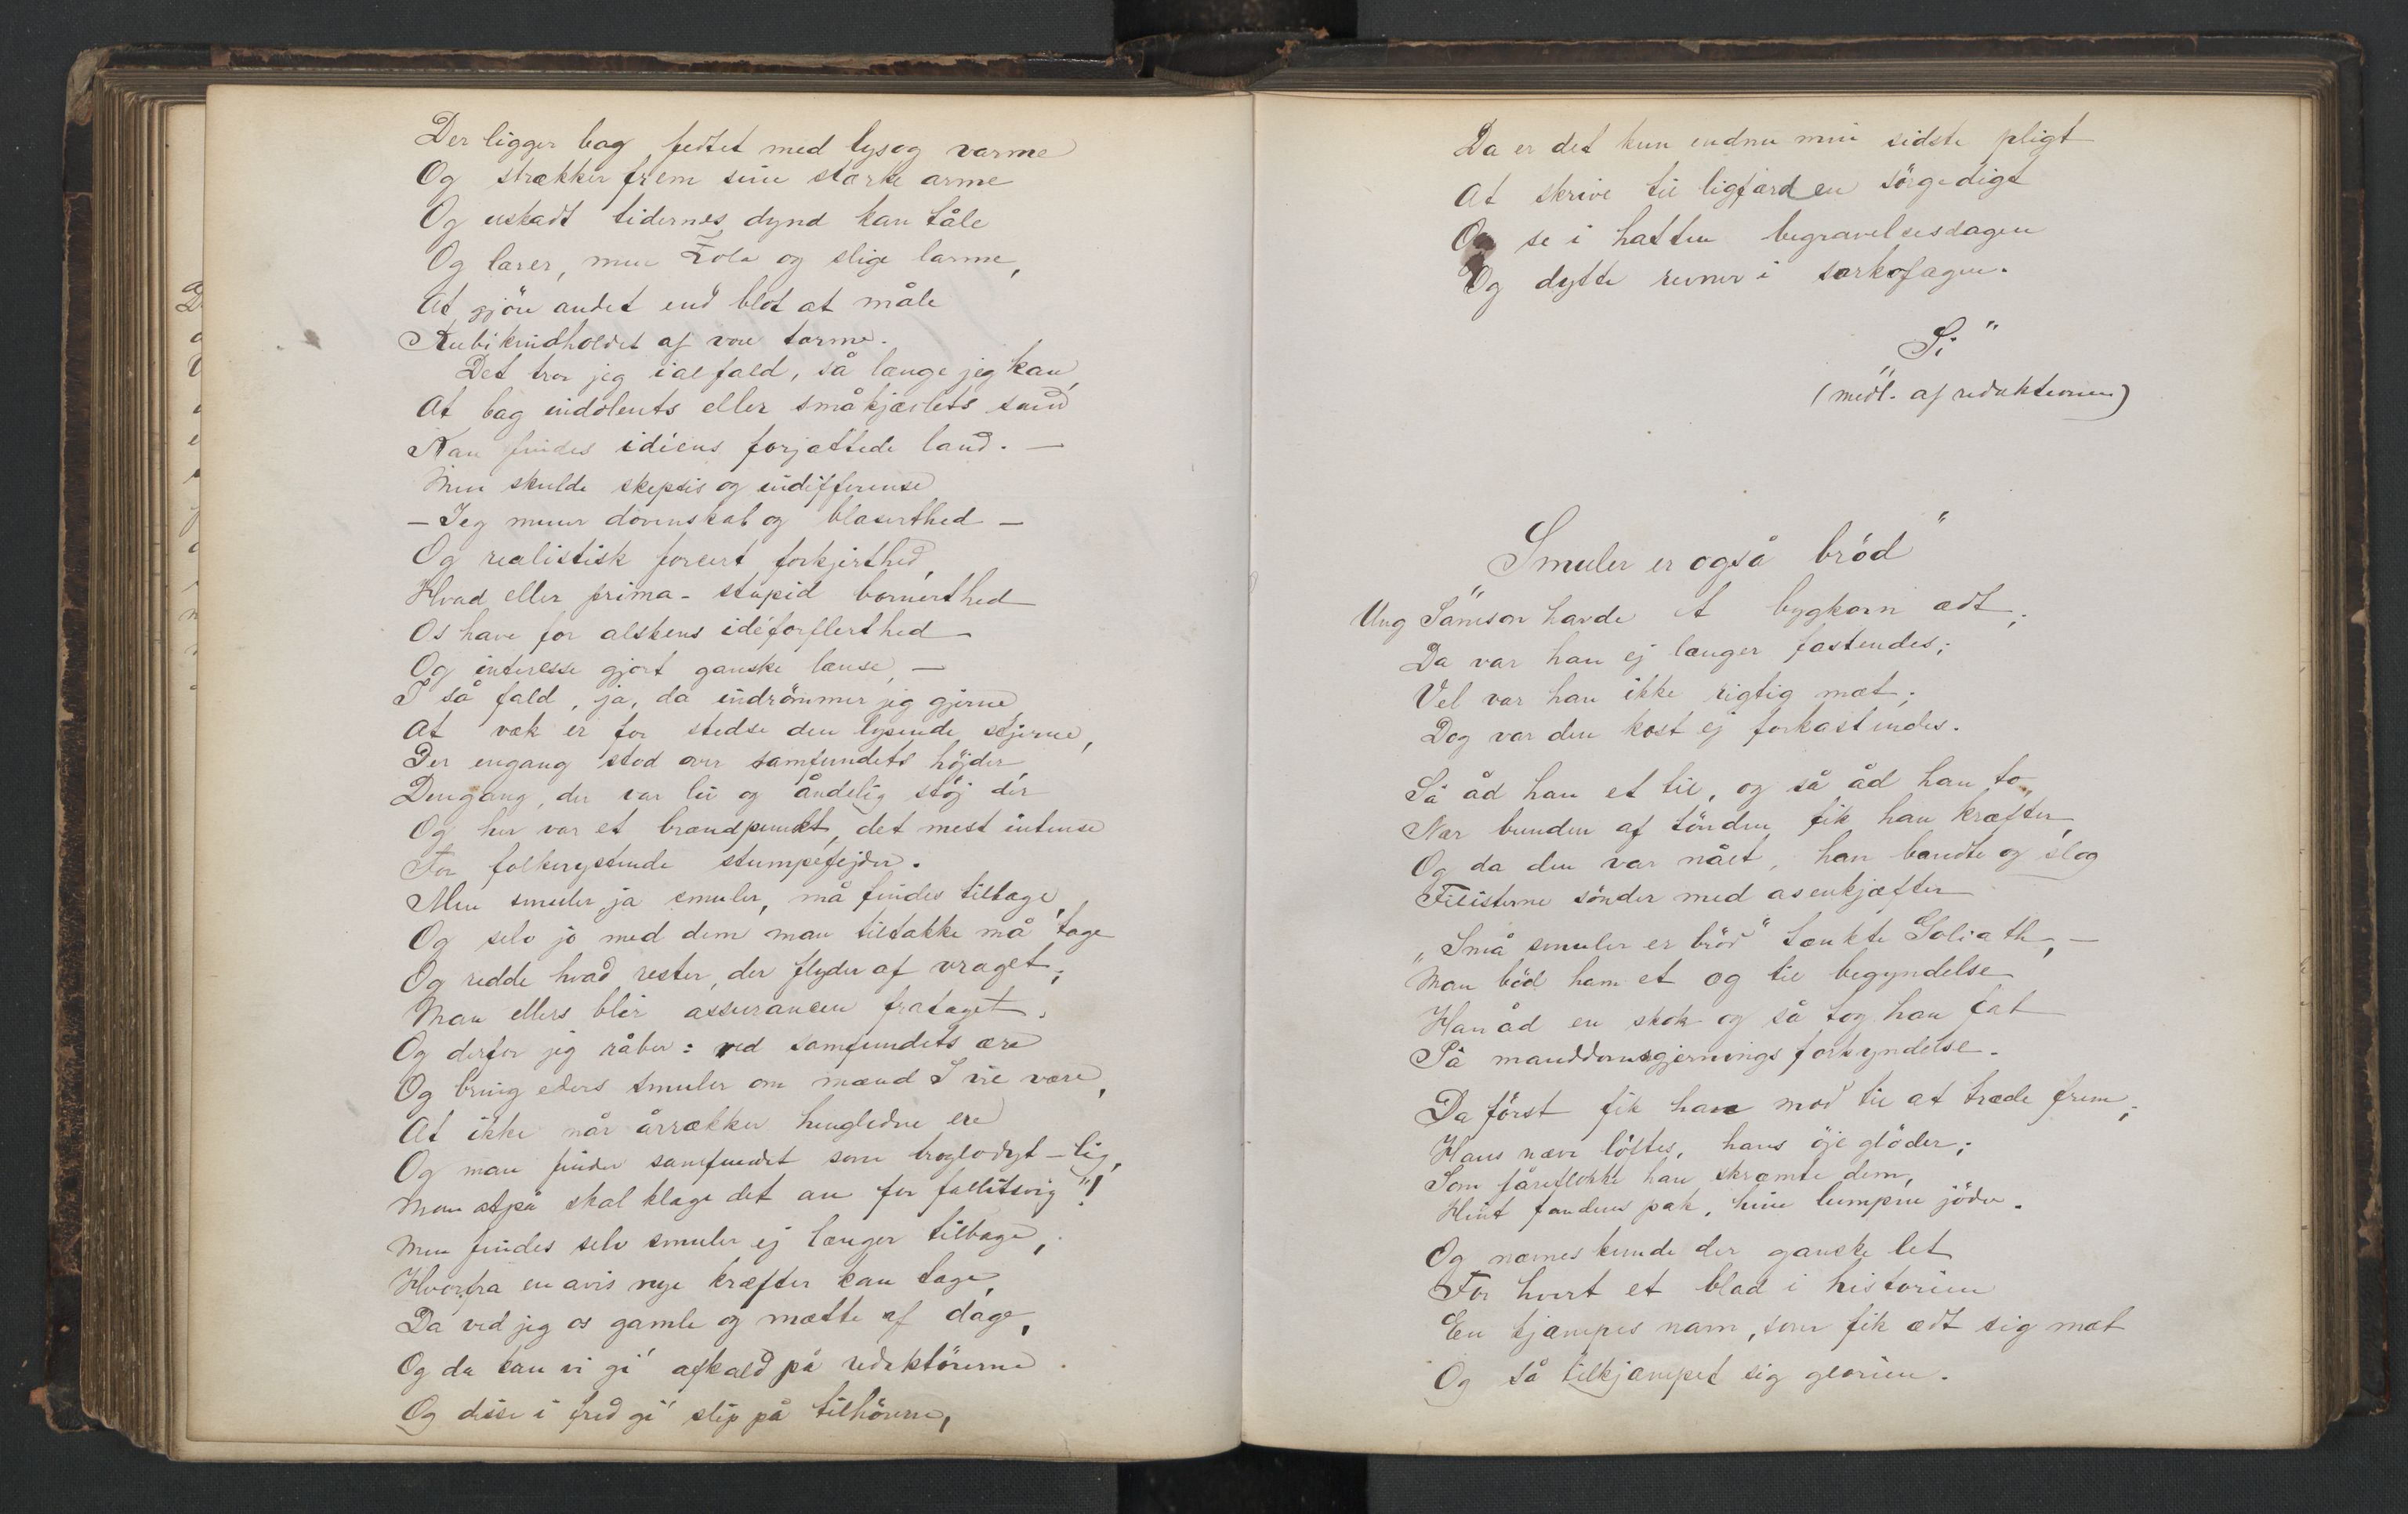 Der ligger bag fedtet med lys og varme
Og strækker frem sine stærke arme
Og uskadt tidernes dynd kan tåle
Og lærer, mens Zola og slige larme,
At gjöre andet end blot at måle
Kubikindholdet af vore tarme.
Det tror jeg ialfald, så længe jeg kan,
At bag indolents eller småkjævlets sand
Kan findes idéens forjættede land. —
Men skulde skepsis og indifferense
— Jeg mener dovenskab og blaserthed —
Og realistisk forcert forkjerthed,
Hvad eller prima-stupid bornerthed
Os have for alskens idéforflerthed
Og interesse gjort ganske lænse, —
I så fald, ja, da indrömmer jeg gjerne
At væk er for stedse den lysende stjerne,
Der engang stod over samfundets höjder,
Dengang, der var liv og åndelig stöj der
Og her var et brændpunkt, det mest intense
For folkerystende stumpefejder.
Men smuler, ja smuler, må findes tilbage,
Og selv jo med dem man tiltakke må tage
Og redde hvad rester, der flyder af vraget;
Man ellers blir assurancen frataget.
Og derfor jeg råber: ved samfundets ære
Og bring eders smuler om mænd I vil være,
At ikke når årrækker hengledne ere
Og man finder samfundet som troglodyt-lig,
Man atpå skal klage det an for fallitsvig"!
Men findes selv smuler ej længer tilbage,
Hvorfra en avis nye kræfter kan tage,
Da ved jeg os gamle og mætte af dage,
Og da kan vi gi' afkald på redaktörerne
Og disse i fred gi' slip på tilhörerne,
Da er det kun endnu min sidste pligt
At skrive til ligfærden sörgedigt
Og se i hatten begravelsesdagen
Og dytte revner i sarkofagen.
"Si"
(medl. af redaktionen)
"Smuler er også bröd"
Ung Samson havde et bygkorn ædt;
Da var han ej længer fastendes;
Vel var han ikke rigtig mæt;
Dog var den kost ej forkastendes.
Så åd han et til, og så åd han to,
Nær bunden af tönden fik han kræfter,
Og da den var nået, han bandte og slog
Filisterne sönder med asenkjæfter
"Små smuler er bröd" tænkte Goliath, —
Man böd ham et og til begyndelse
Han åd en skok og så tog han fat
På manddomsgjernings forkyndelse.
Da först fik han mod til at træde frem;
Hans næve löftes, hans öje glöder;
Som fåreflokke han skræmte dem,
Hint fandens pak, hine lumpne jöder.
Og nævnes kunde der ganske let
For hvert et blad i historien
En kjæmpes navn, som fik ædt sig mæt
Og så tilkjæmpet sig glorien.